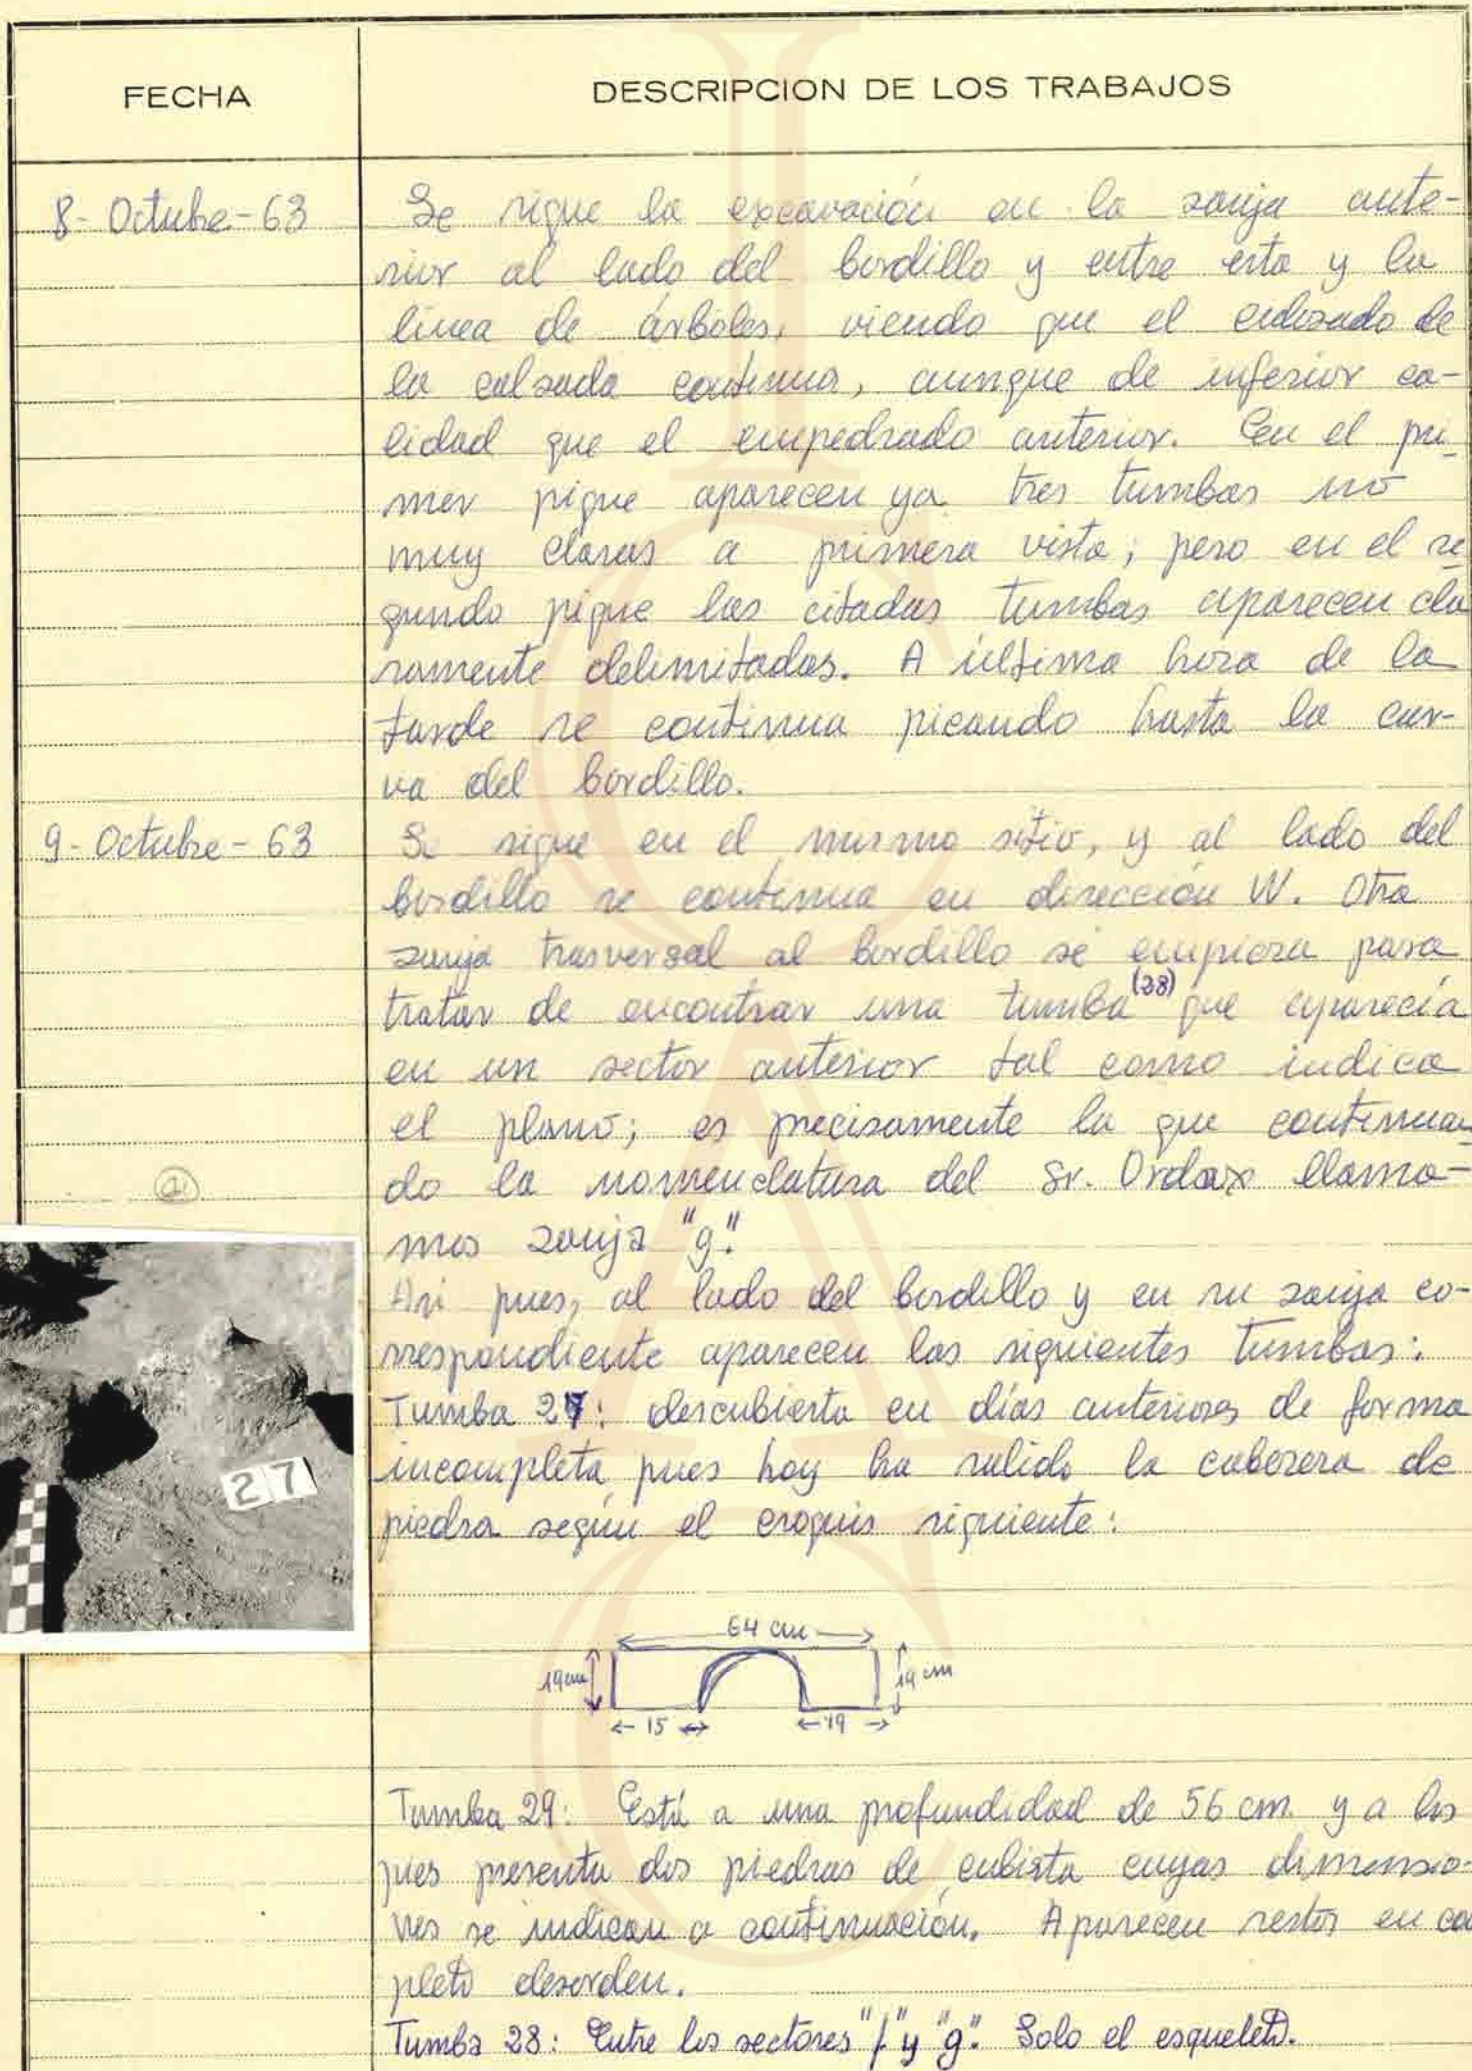 FECHA
DESCRIPCION DE LOS TRABAJOS
8- Octubre-63
Se sigue la excavación en la zanja ante-
rior al lado del bordillo y entre esta y la
línea de árboles, viendo que el enlosado de
la calzada continua, aunque de inferior ca-
lidad que el empedrado anterior. En el pri-
mer pique aparecen ya tres tumbas no
muy claras a primera vista; pero en el se
gundo pique las citadas tumbas aparecen cla
ramente delimitadas. A última hora de la
tarde se continua picando hasta la cur-
va del bordillo.
9- Octubre-63
Se sigue en el mismo sitio, y al lado del
bordillo se continua en dirección W. Otra
zanja trasversal al bordillo se empieza para
tratar de encontrar una tumba (28) que aparecía
en un sector anterior tal como indica
el plano; es precisamente la que continuan
do la nomenclatura del Sr. Ordax llama-
mos zanja "g".
Asi pues, al lado del bordillo y en su zanja co-
rrespondiente aparecen las siguientes tumbas:
Tumba 27: descubierta en días anteriores de forma
incompleta pues hoy ha salido la cabezera de
piedra según el croquis siguiente:
27
64 cm
19 cm
19 cm
15
19
Tumba 29: Está a una profundidad de 56 cm. y a los
pies presenta dos piedras de cubierta cuyas dimensio-
nes se indican a continuación. Aparecen restos en co
pleto desorden.
Tumba 28: Entre los sectores "f" y "g". Solo el esqueleto.